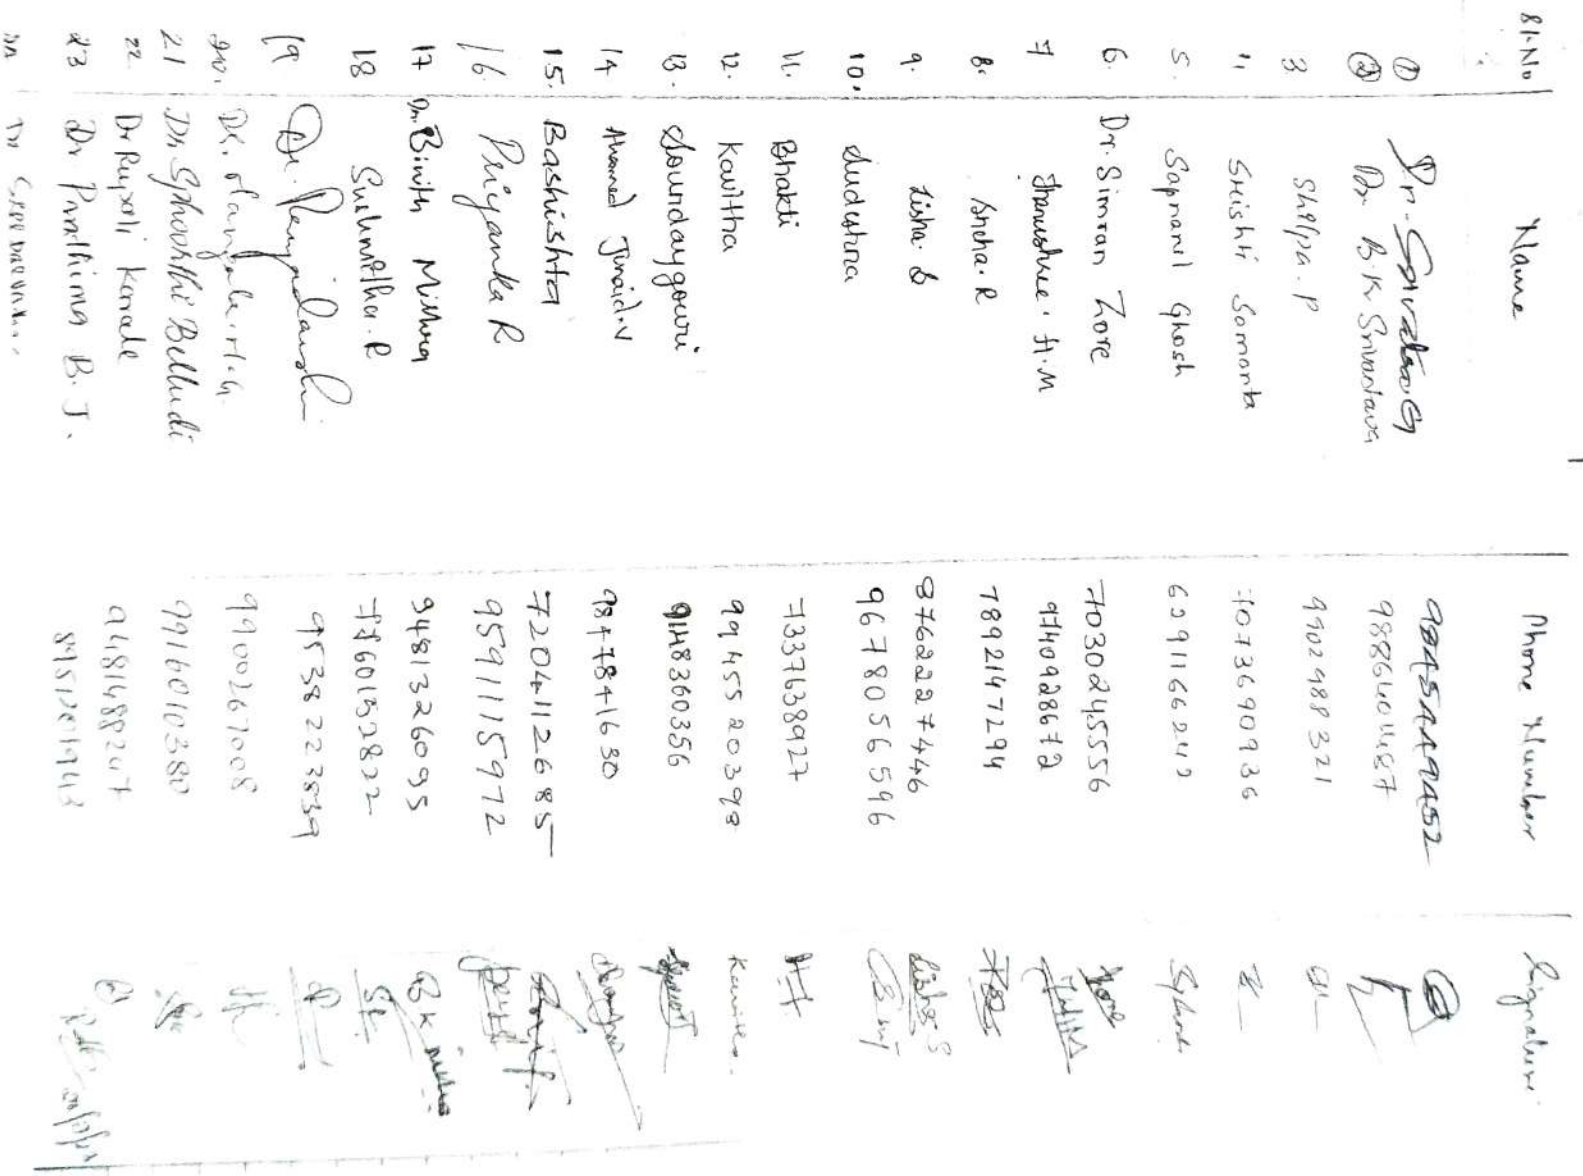 Sl.No Name Phone Number Signature
① Dr. 9845449452
② Dr. B.K. Srivastava
3 Shilpa.P 9902988321
4 Srishti Samanta 7073690936
5. Sapnanil Ghosh 6291166242
6. Dr. Simran Zore 7030245556
7 Thanushree. H.M 9740928672
8. Sneha.R 7892147294
9. Lisha.S 8762227446 Lisha S
10. Sudeshna 9678056596
11. Bhakti 7337638927
12. Kavitha 9945520398 Kavitha.
13. Soundaygouri 9148360356
14 Ahamed Junaid.V 9847841630
15. Bashishta 7204112685
16. Priyanka R 9591115972
17 Dr. Binith Mishra 9481326095
18 Sushmitha.R 7760152822
19 Dr. Priyadarshi 9538223839
20. Dr. 9900267008
21 Dr. Sphoorthi Belludi 9916010380
22 Dr Rupali Karale 9481488247
23 Dr Prathima B.J. 8951201943